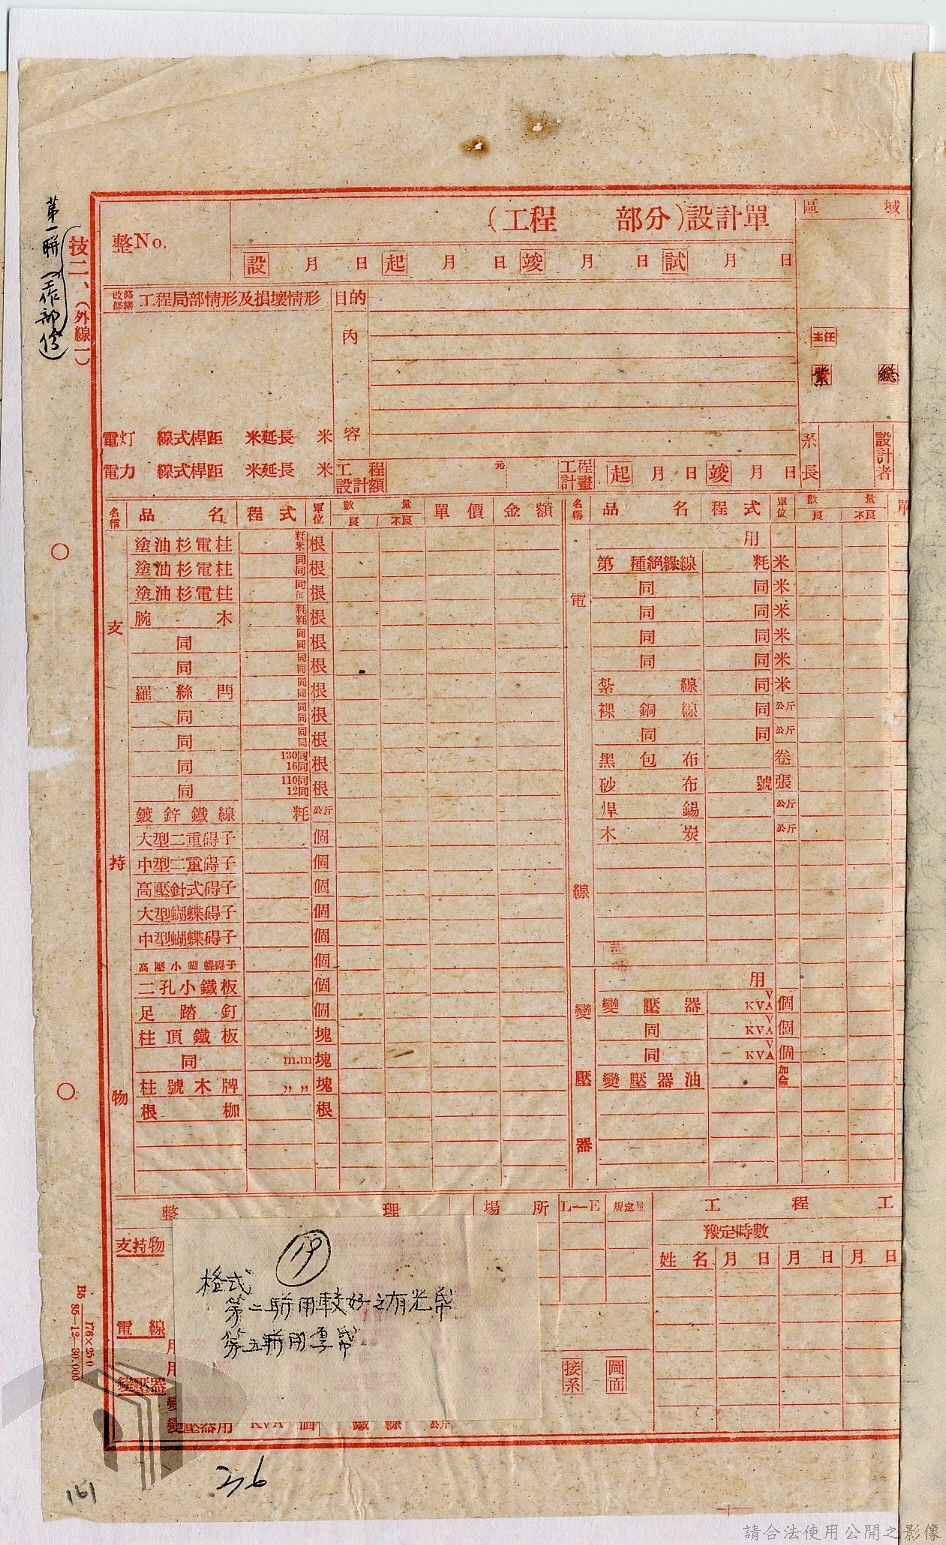 第一聯(工作部份)
技二、(外線一)
整No.
(工程 部分)設計單
區 域
設 月 日 起 月 日 竣 月 日 試 月 日
工程局部情形及損壞情形
目的
內
容
主任
業 總
電灯 線式桿距 米延長 米
電力 線式桿距 米延長 米
工程設計額 元
工程計畫 起 月 日 竣 月 日
系長
設計者
名稱 品 名 程 式 單位 數 量 良 不良 單 價 金 額
名稱 品 名 程 式 單位 數 量 良 不良 單
支持物
塗油杉電柱 粍米 根
塗油杉電柱 同同 根
塗油杉電柱 同同 根
腕 木 粍粍 根
同 同同 根
同 同同 根
羅絲門 同同 根
同 同同 根
同 同同 根
同 130同 16同 根
同 110同 12同 根
鍍鋅鐵線 粍 公斤
大型二重碍子 個
中型二重碍子 個
高壓針式碍子 個
大型蝴蝶碍子 個
中型蝴蝶碍子 個
高壓小蝴蝶碍子 個
二孔小鐵板 個
足踏釘 個
柱頂鐵板 塊
同 m.m 塊
柱號木牌 〃〃 塊
根 枷 根
電線
用
第 種絕緣線 粍 米
同 同 米
同 同 米
同 同 米
同 同 米
紮 線 同 米
裸銅線 同 公斤
同 同 公斤
黑包布 卷
砂 布 號 張
焊 錫 公斤
木 炭 公斤
變壓器
用
變壓器 V KVA 個
同 V KVA 個
同 V KVA 個
變壓器油 加侖
整 理 場 所 L—E 規定量
工 程 工
豫定時數
姓 名 月 日 月 日 月 日
支持物
電線
用
用
變壓器
變壓器用 KVA 個 鐵線
接系
圖面
19
格式
第二聯用較好之有光紙
第五聯用厚紙
B5 176×250
85—12—30.000
276
161
請合法使用公開之影像